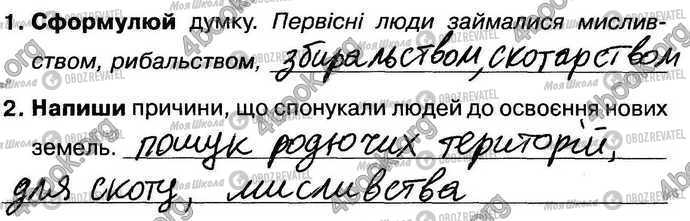 1. Сформулюй думку. Первісні люди займалися мислив-
ством, рибальством, збиральством, скотарством
2. Напиши причини, що спонукали людей до освоєння нових
земель. пошук родючих територій,
для скоту, мисливства